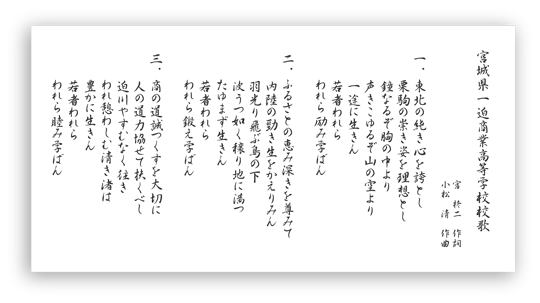 宮城県一迫商業高等学校校歌
宮 柊二 作詞
小松 清 作曲
一、東北の純き心を誇とし
栗駒の崇き姿を理想とし
鐘なるぞ胸の中より
声きこゆるぞ山の空より
一途に生きん
若者われら
われら励み学ばん
二、ふるさとの恵み深きを尊みて
内陸の勁き生をかえりみん
羽光り飛ぶ鳥の下
波うつ如く稼り地に満つ
たゆまず生きん
若者われら
われら鍛え学ばん
三、商の道誠つくすを大切に
人の道力協せて扶くべし
迫川やすむなく往き
われ憩わしむ清き渚は
豊かに生きん
若者われら
われら睦み学ばん